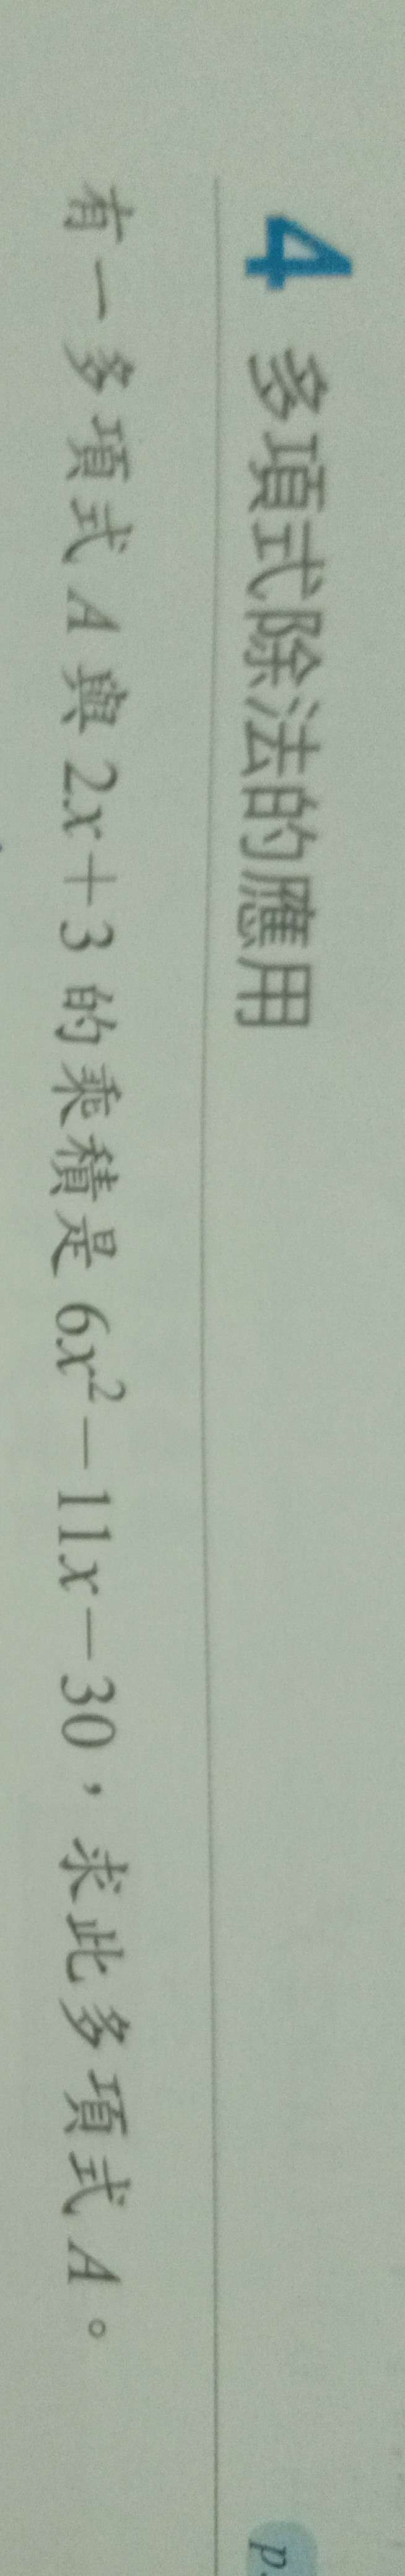 4 多項式除法的應用
p.
有一多項式 A 與 2x＋3 的乘積是 6x²－11x－30，求此多項式 A。